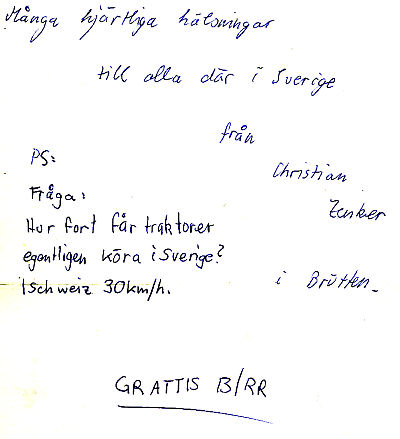 Många hjärtliga hälsningar
till alla där i Sverige
från
Christian
Zenker
i Brütten.
PS:
Fråga:
Hur fort får traktorer
egentligen köra i Sverige?
i Schweiz 30km/h.
GRATTIS B/RR